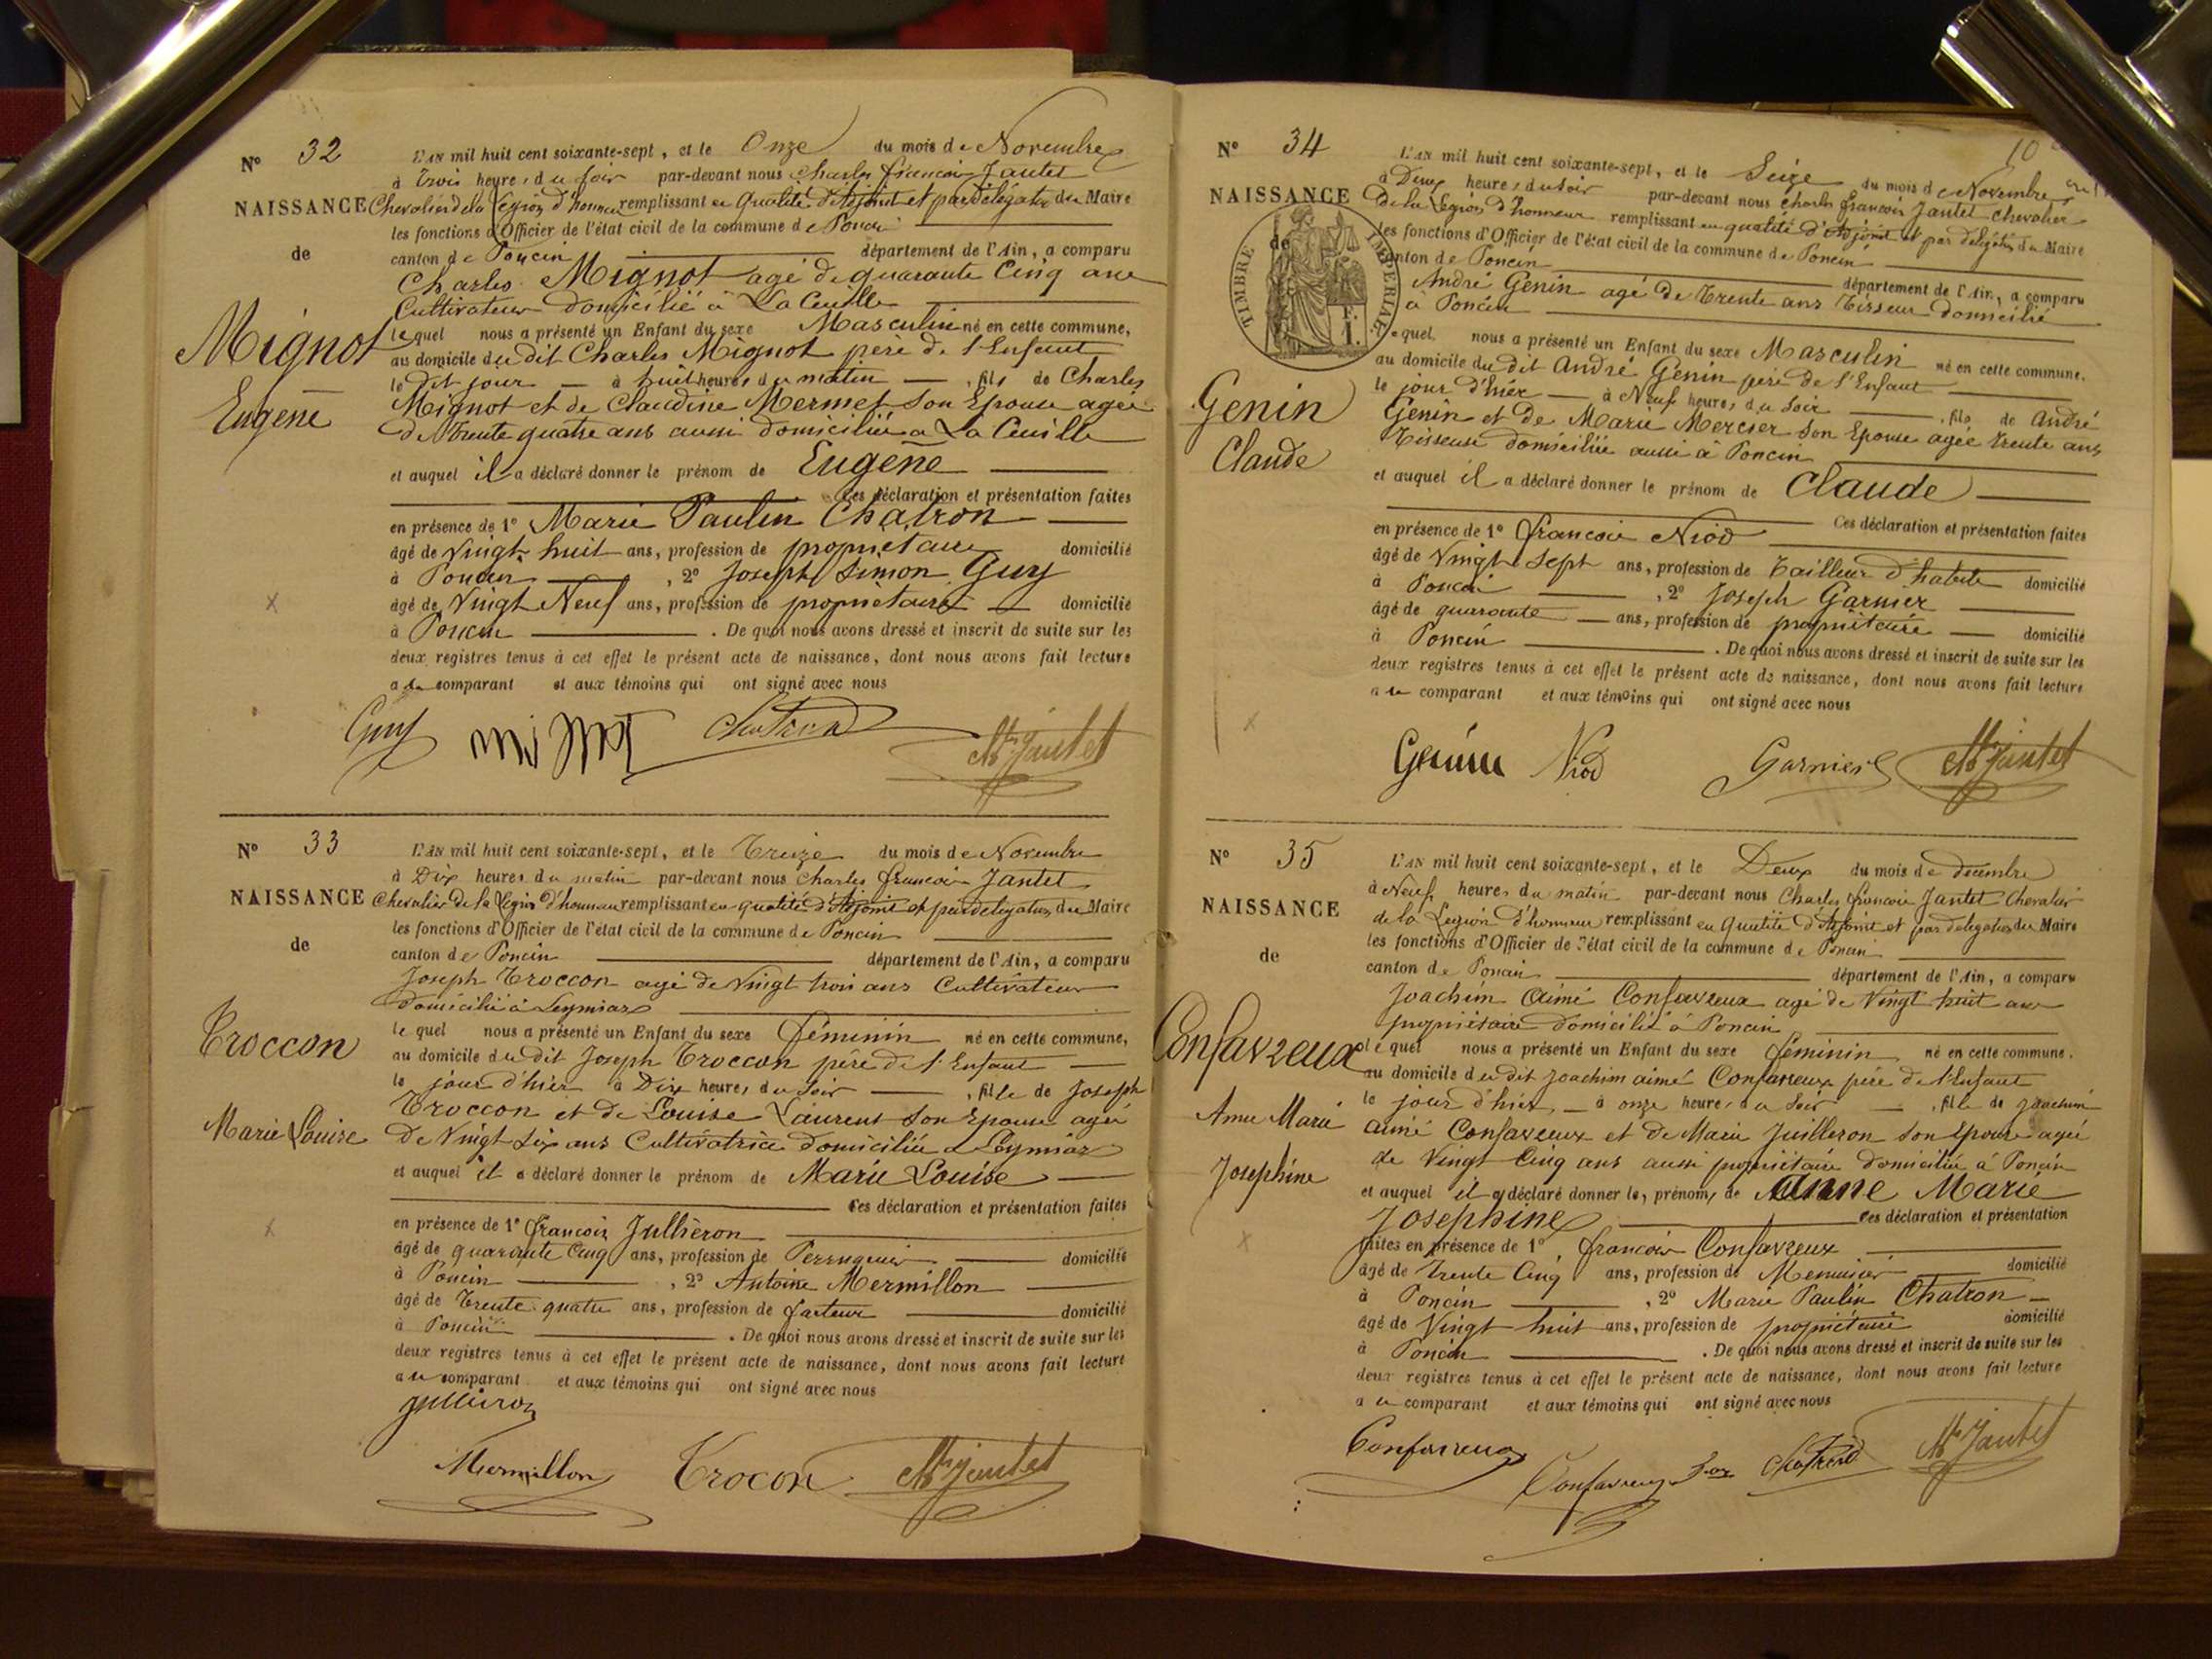 N° 32
L'AN mil huit cent soixante-sept, et le Onze du mois de Novembre
à trois heures du soir par-devant nous Charles françois Jantet
NAISSANCE Chevalier de la Légion d'honneur remplissant en qualité d'Adjoint et par délégation du Maire
les fonctions d'Officier de l'état civil de la commune de Poncin
de canton de Poncin département de l'Ain, a comparu
Charles Mignot agé de quarante Cinq ans
Cultivateur domicilié à La Cueille
lequel nous a présenté un Enfant du sexe Masculin né en cette commune,
Mignot au domicile du dit Charles Mignot père de l'Enfant
le dit jour à huit heures du matin, fils de Charles
Eugène Mignot et de Claudine Mermet son Epouse agée
de trente quatre ans aussi domiciliée a La Cueille
et auquel il a déclaré donner le prénom de Eugène
Ces déclaration et présentation faites
en présence de 1° Marie Paulin Chatron
âgé de Vingt huit ans, profession de propriétaire domicilié
à Poncin, 2° Joseph Simon Guy
âgé de Vingt Neuf ans, profession de propriétaire domicilié
à Poncin. De quoi nous avons dressé et inscrit de suite sur les
deux registres tenus à cet effet le présent acte de naissance, dont nous avons fait lecture
au comparant et aux témoins qui ont signé avec nous
Guy Chatron Jantet
N° 33
L'AN mil huit cent soixante-sept, et le Treize du mois de Novembre
à Dix heures du matin par-devant nous Charles françois Jantet
NAISSANCE Chevalier de la Légion d'honneur remplissant en qualité d'Adjoint et par délégation du Maire
les fonctions d'Officier de l'état civil de la commune de Poncin
de canton de Poncin département de l'Ain, a comparu
Joseph Troccon agé de Vingt trois ans Cultivateur
domicilié à Leymiaz
lequel nous a présenté un Enfant du sexe féminin né en cette commune,
Troccon au domicile du dit Joseph Troccon père de l'Enfant
le jour d'hier à Dix heures du soir, fille de Joseph
Troccon et de Louise Laurent son Epouse agée
Marie Louise de Vingt six ans Cultivatrice domiciliée a Leymiaz
et auquel il a déclaré donner le prénom de Marie Louise
Ces déclaration et présentation faites
en présence de 1° françois Jullieron
âgé de quarante Cinq ans, profession de Perruquier domicilié
à Poncin, 2° Antoine Mermillon
âgé de Trente quatre ans, profession de facteur domicilié
à Poncin. De quoi nous avons dressé et inscrit de suite sur les
deux registres tenus à cet effet le présent acte de naissance, dont nous avons fait lecture
au comparant et aux témoins qui ont signé avec nous
Jullieron
Mermillon Trocon Jantet
10
N° 34
L'AN mil huit cent soixante-sept, et le Seize du mois de Novembre
à Deux heures du soir par-devant nous Charles françois Jantet Chevalier
NAISSANCE de la Légion d'honneur remplissant en qualité d'Adjoint et par délégation du Maire
de les fonctions d'Officier de l'état civil de la commune de Poncin
canton de Poncin département de l'Ain, a comparu
TIMBRE IMPERIAL
André Genin agé de Trente ans Tisseur domicilié
à Poncin
lequel nous a présenté un Enfant du sexe Masculin né en cette commune,
au domicile du dit André Genin père de l'Enfant
le jour d'hier à Neuf heures du soir, fils de André
Genin Genin et de Marie Mercier son Epouse agée trente ans
Tisseuse domiciliée aussi à Poncin
Claude et auquel il a déclaré donner le prénom de Claude
Ces déclaration et présentation faites
en présence de 1° françois Niod
âgé de Vingt Sept ans, profession de Tailleur d'habits domicilié
à Poncin, 2° Joseph Garnier
âgé de quarante ans, profession de propriétaire domicilié
à Poncin. De quoi nous avons dressé et inscrit de suite sur les
deux registres tenus à cet effet le présent acte de naissance, dont nous avons fait lecture
au comparant et aux témoins qui ont signé avec nous
Genin Niod Garnier Jantet
N° 35
L'AN mil huit cent soixante-sept, et le Deux du mois de décembre
à Neuf heures du matin par-devant nous Charles françois Jantet Chevalier
NAISSANCE de la Légion d'honneur remplissant en qualité d'Adjoint et par délégation du Maire
les fonctions d'Officier de l'état civil de la commune de Poncin
de canton de Poncin département de l'Ain, a comparu
Joachim Aimé Confavreux agé de Vingt huit ans
propriétaire domicilié à Poncin
Confavreux lequel nous a présenté un Enfant du sexe féminin né en cette commune,
au domicile du dit Joachim aimé Confavreux père de l'Enfant
le jour d'hier à onze heures du soir, fille de Joachim
Anne Marie aimé Confavreux et de Marie Juilleron son Epouse agée
de Vingt Cinq ans aussi propriétaire domiciliée à Poncin
Josephine et auquel il a déclaré donner les prénoms de Anne Marie
Josephine Ces déclaration et présentation
faites en présence de 1° françois Confavreux
âgé de Trente Cinq ans, profession de Menuisier domicilié
à Poncin, 2° Marie Paulin Chatron
âgé de Vingt huit ans, profession de propriétaire domicilié
à Poncin. De quoi nous avons dressé et inscrit de suite sur les
deux registres tenus à cet effet le présent acte de naissance, dont nous avons fait lecture
au comparant et aux témoins qui ont signé avec nous
Confavreux Confavreux Chatron Jantet